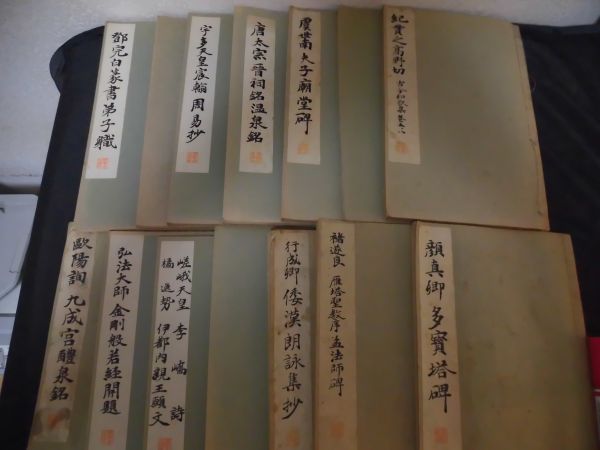 鄧完白篆書弟子職
宇多天皇宸翰周易抄
唐太宗晋祠銘温泉銘
虞世南夫子廟堂碑
紀貫之高野切
歐陽詢九成宮醴泉銘
弘法大師金剛般若経開題
嵯峨天皇李嶠詩
橘逸勢伊都内親王願文
行成卿倭漢朗詠集抄
褚遂良雁塔聖教序孟法師碑
顔真卿多寶塔碑